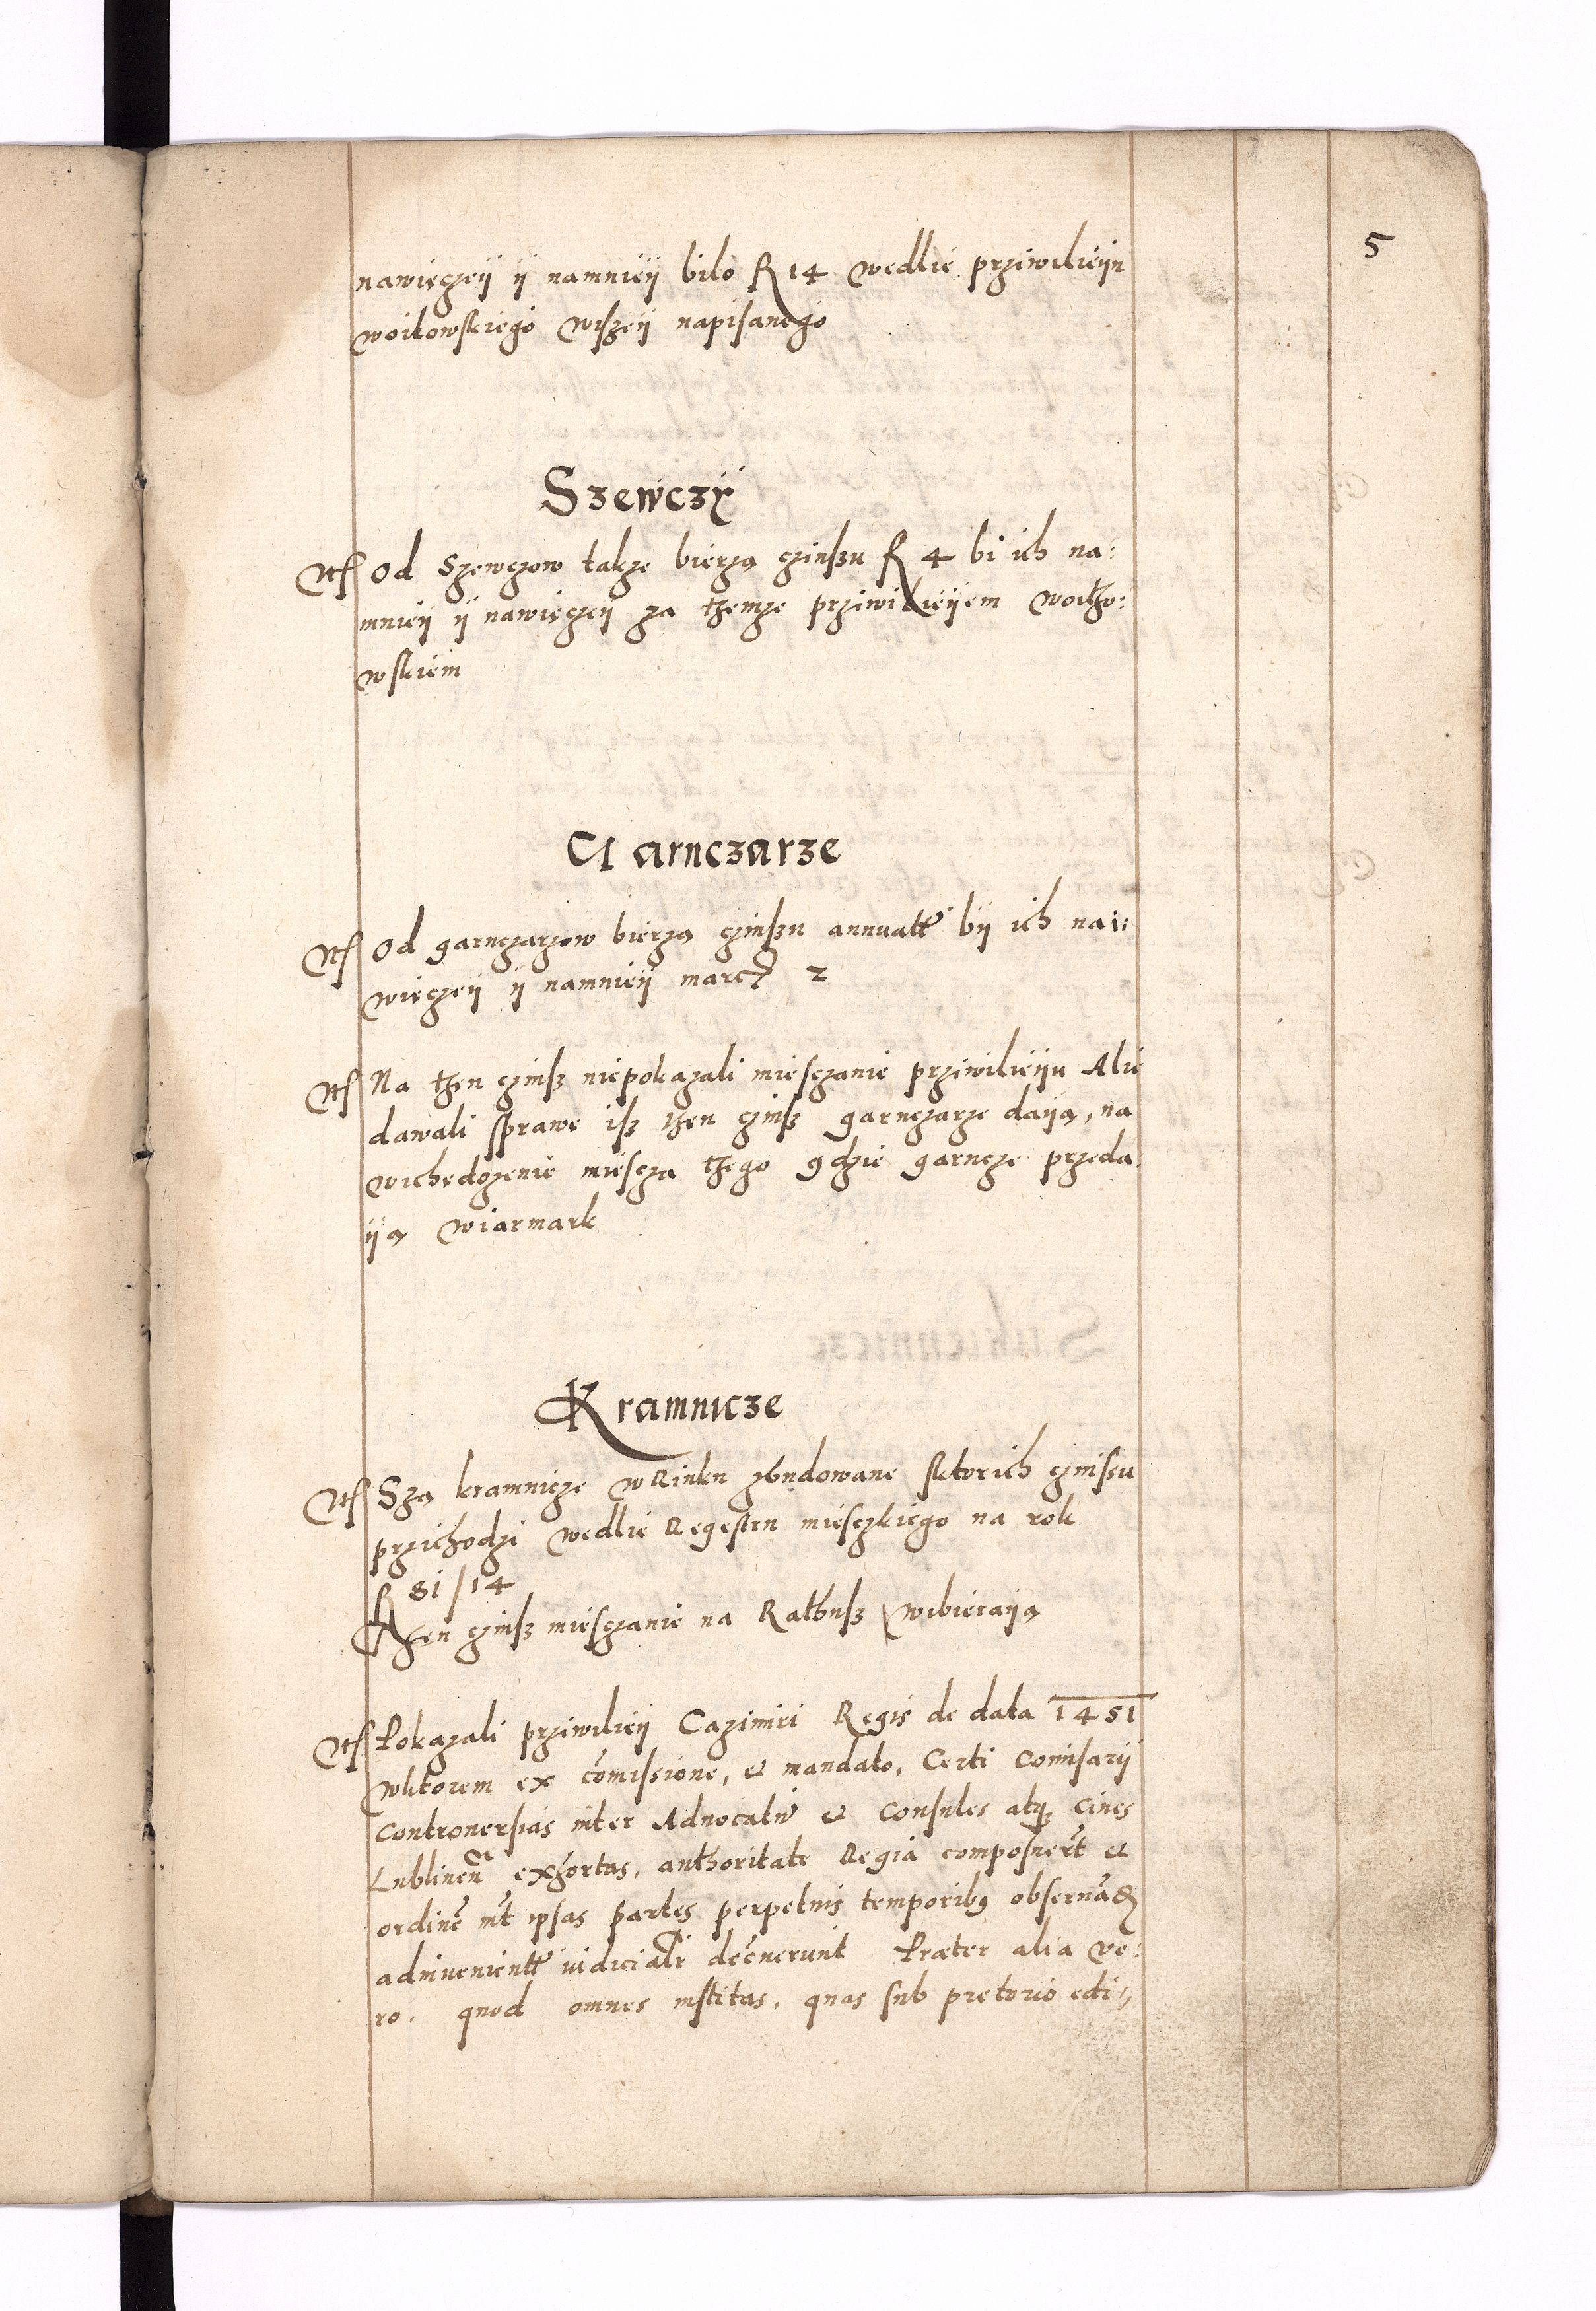 5
nawięczeÿ ÿ namnieÿ bilo R 14 wedlie prziwilieÿu
woitowskiego wiszeÿ napisanego
Szewczÿ
Itē Od Szewczow takze bierzą czinszu R 4 bi ich na:
mnieÿ ÿ nawięczeÿ za themze prziwilieÿem woitho:
wskiem
Garnczarze
Itē Od garnczarzow bierzą czinszu annuatī bÿ ich nai:
więczeÿ ÿ namnieÿ marcz 2
Itē Na then czinsz niepokazali miesczanie prziwilieÿu Alie
dawali sprawe isz then czinsz garnczarze daÿą, na
wichędozenie miescza thego gdzie garncze przeda
ÿą wiarmark
Kramnicze
Itē Szą kramnicze w Rinku zbudowane sktorich czinssu
przichodzi wedlie Regestru miesczkiego na rok
R 81/14
then czinsz miesczanie na Rathusz wibieraÿą
Itē Pokazali prziwilieÿ Cazimiri Regis de data 1451
wktorem ex cōmissione, et mandato, Certi Comisarÿ
Controuersias inter Aduocatū et Consules atq; Ciues
Lublinēn exhortas, authoritate Regia composuerūt et
ordinē int ipsas partes perpetuis temporibus obseruād
adinuenientī iudicialr decreuerunt Præter alia ve:
ro. quod omnes institas. quas sub pretorio edi-